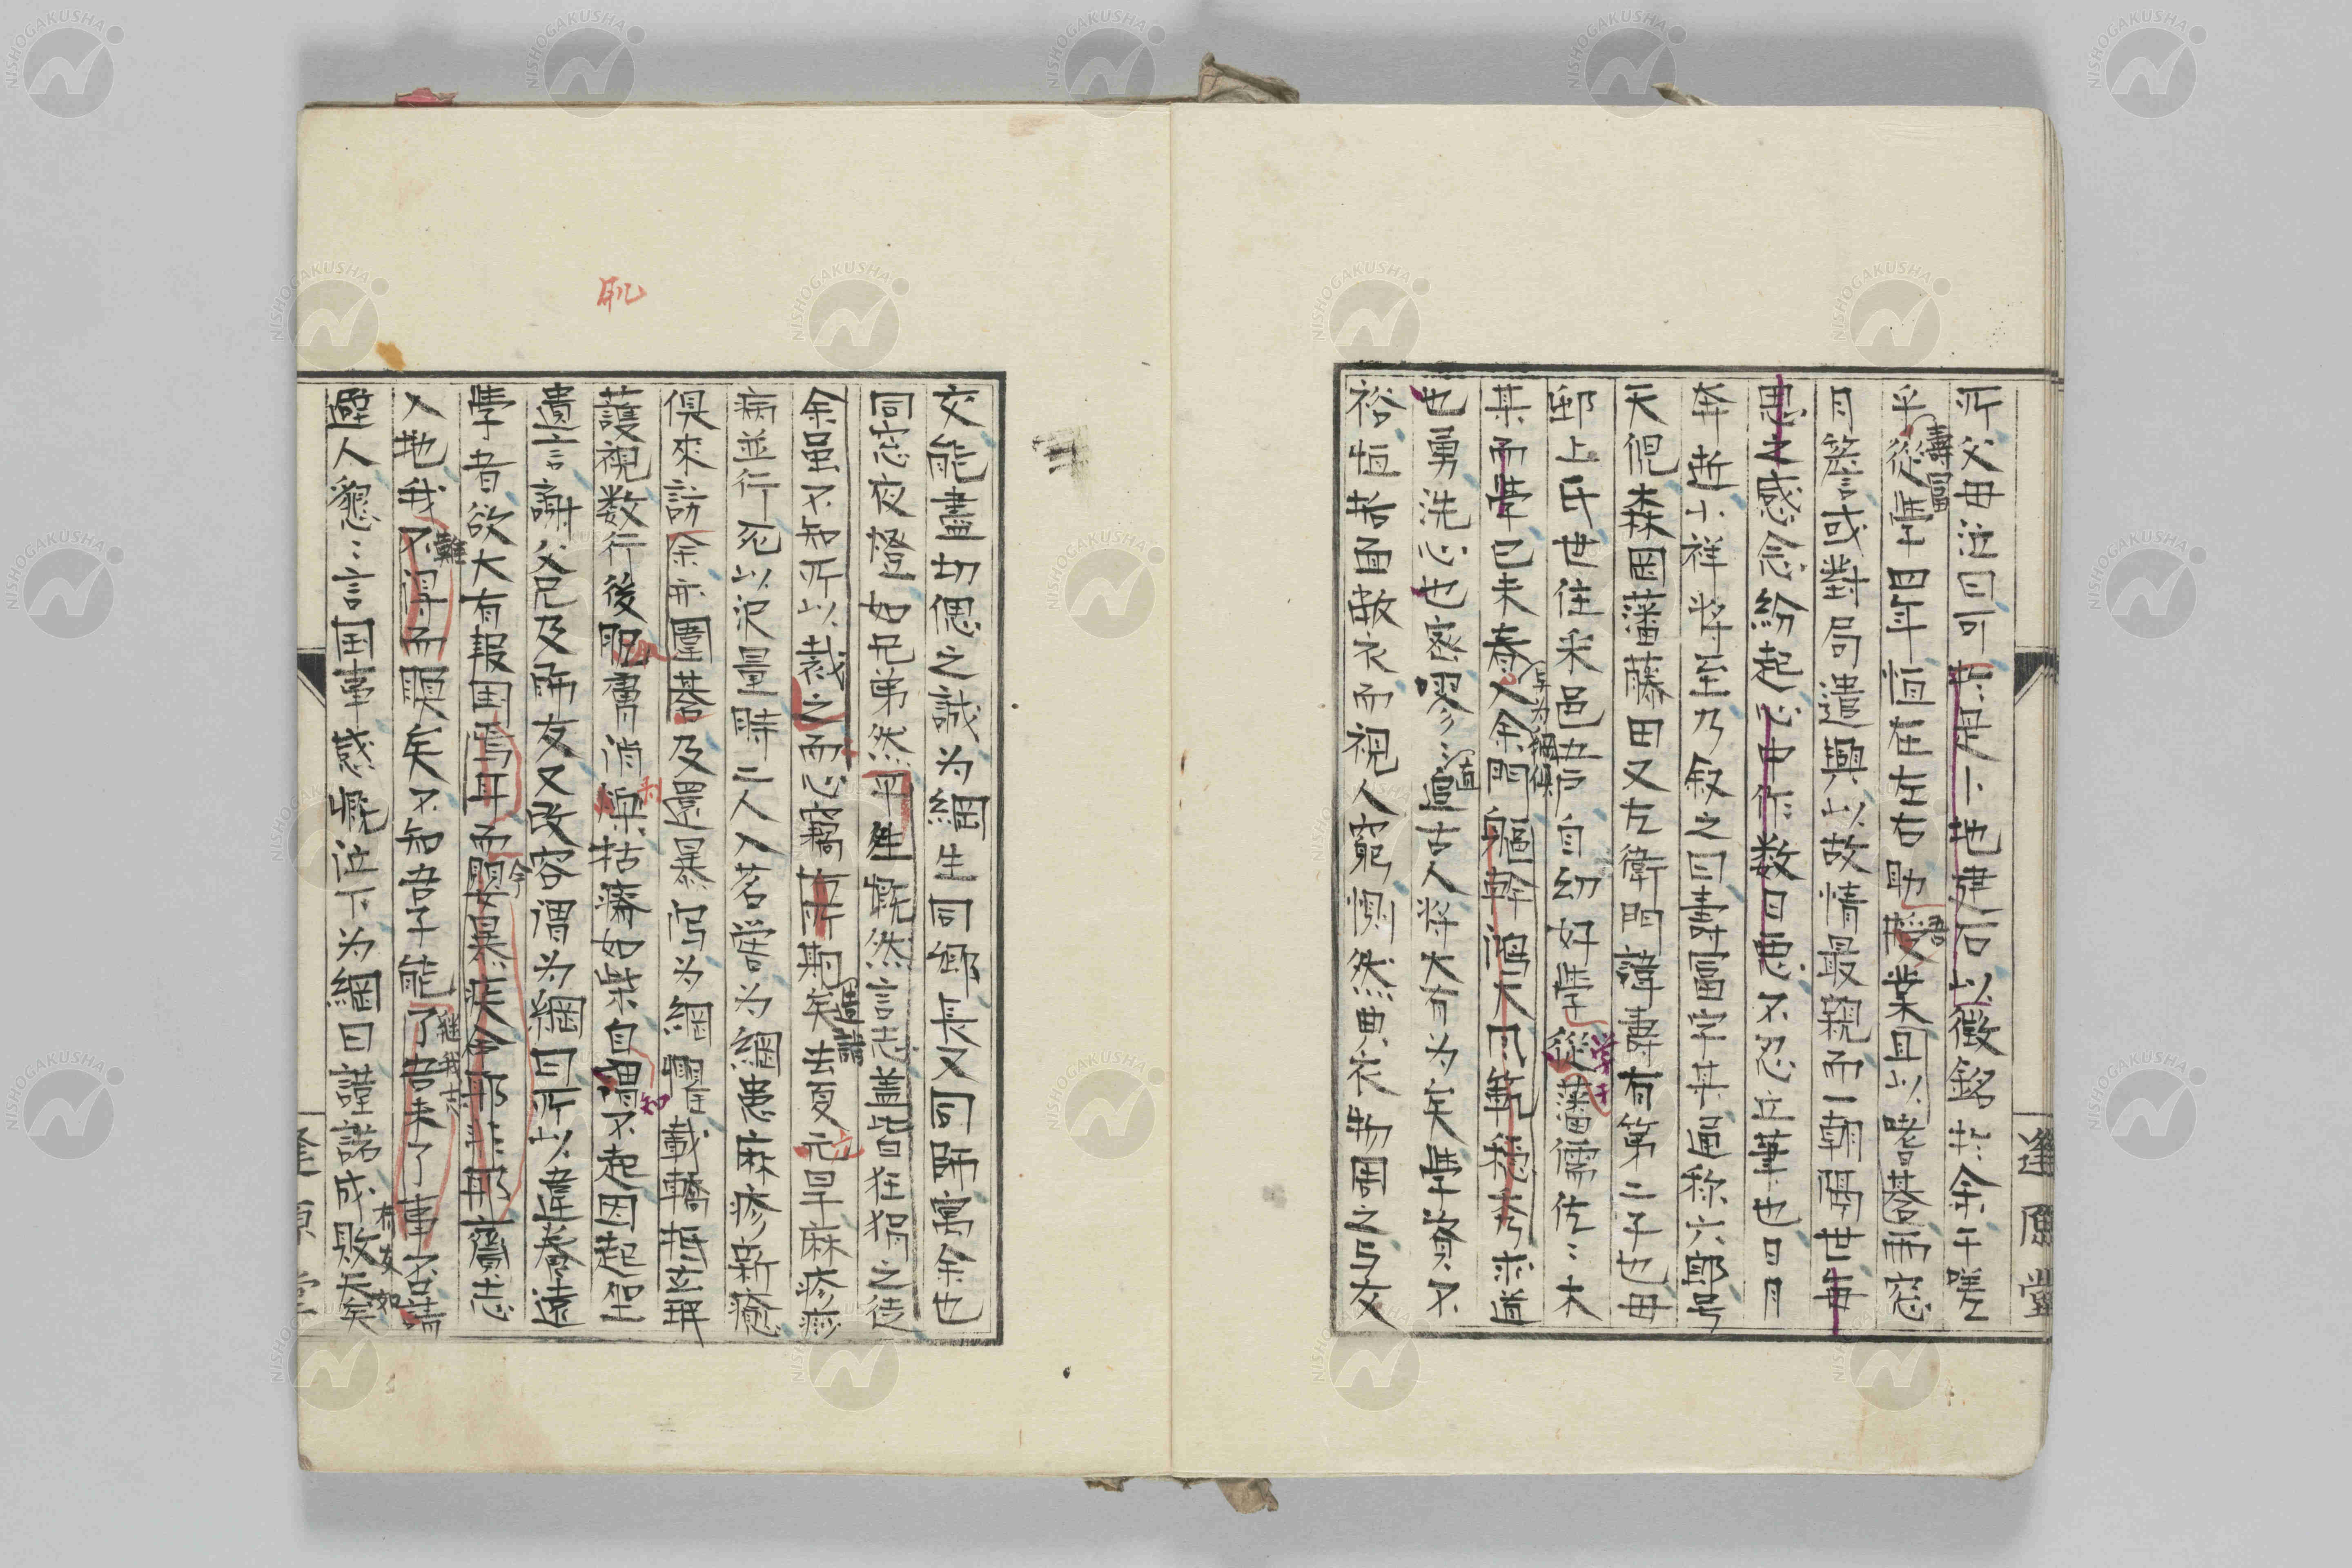 所父母泣曰可於是卜地建石以徵銘於余于嗟
乎從學四年恒在左右助授業且以嗜棊雨窓
壽富
書
月簷或對局遣興以故情最親而一朝隔世每
思之感念紛起心中作数日悪不忍立筆也日月
奔逝小祥将至乃叙之曰壽富字某通称六郎号
天倪森岡藩藤田又左衛門諱壽有第二子也母
邨上氏世住采邑五戸自幼好學從藩儒佐〻木
學于
某而學己未春入余門軀幹鴻大風範穏秀求道
与为綱俱
也勇洗心也密嘐〻直古人将大有为実學資不
直
裕恒菲面敝衣而視人窮惻然典衣物周之与友
逢原堂
交能盡切偲之誠为綱生同鄉長又同師寓余也
同窓夜燈如兄弟然平生慨然言志盖皆狂狷之徒
余虽不知所以裁之而心竊有所期矣去夏元旱麻疹痧
病並行死以沢量時二人入茗黌为綱患麻疹新癒
俱來訪余亦圍棊及還暴瀉为綱驚載轎抵玄珉
護視数行後肥膚消鑠枯瘠如柴自謂不起因起坐
肌
剥
知
遺言謝父兄及師友又改容謂为綱曰所以違眷遠
學者欲大有報国焉耳而嬰暴疾命邪非邪齎志
今
入地我不得而瞑矣不知吾子能了吾未了事否請
難
継我志
避人懇〻言国事感慨泣下为綱曰謹諾成敗天矣
有友如
逢原堂